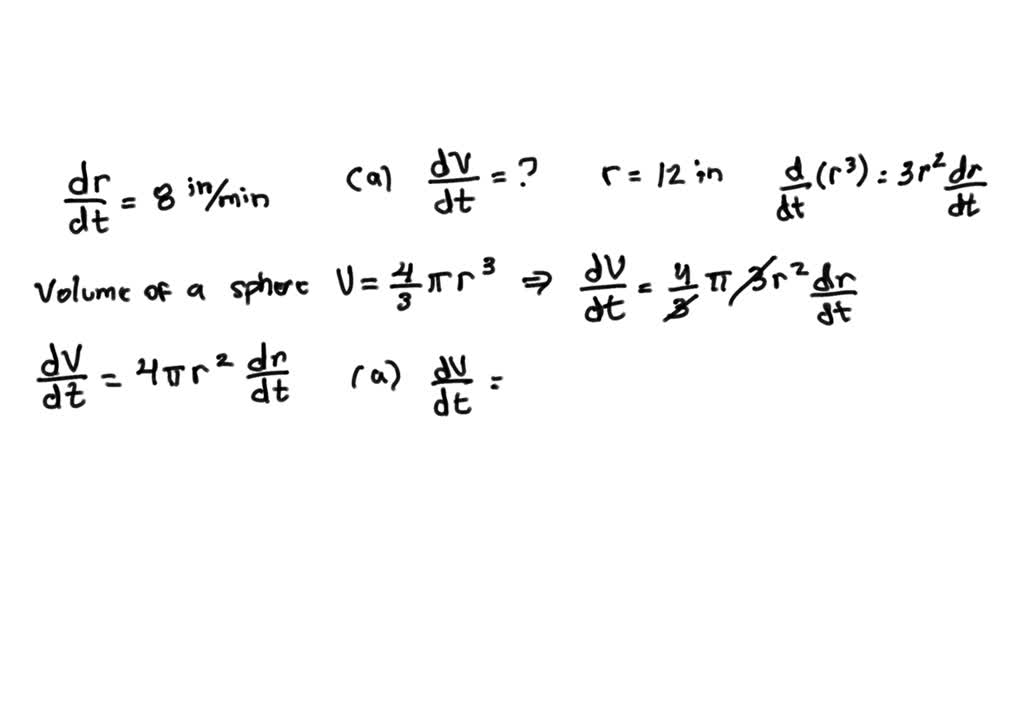 dr/dt = 8 in/min (a) dV/dt = ? r = 12 in d/dt (r³) = 3r² dr/dt
Volume of a sphere V = 4/3 πr³ ⇒ dV/dt = 4/3 π 3r² dr/dt
dV/dt = 4πr² dr/dt (a) dV/dt =